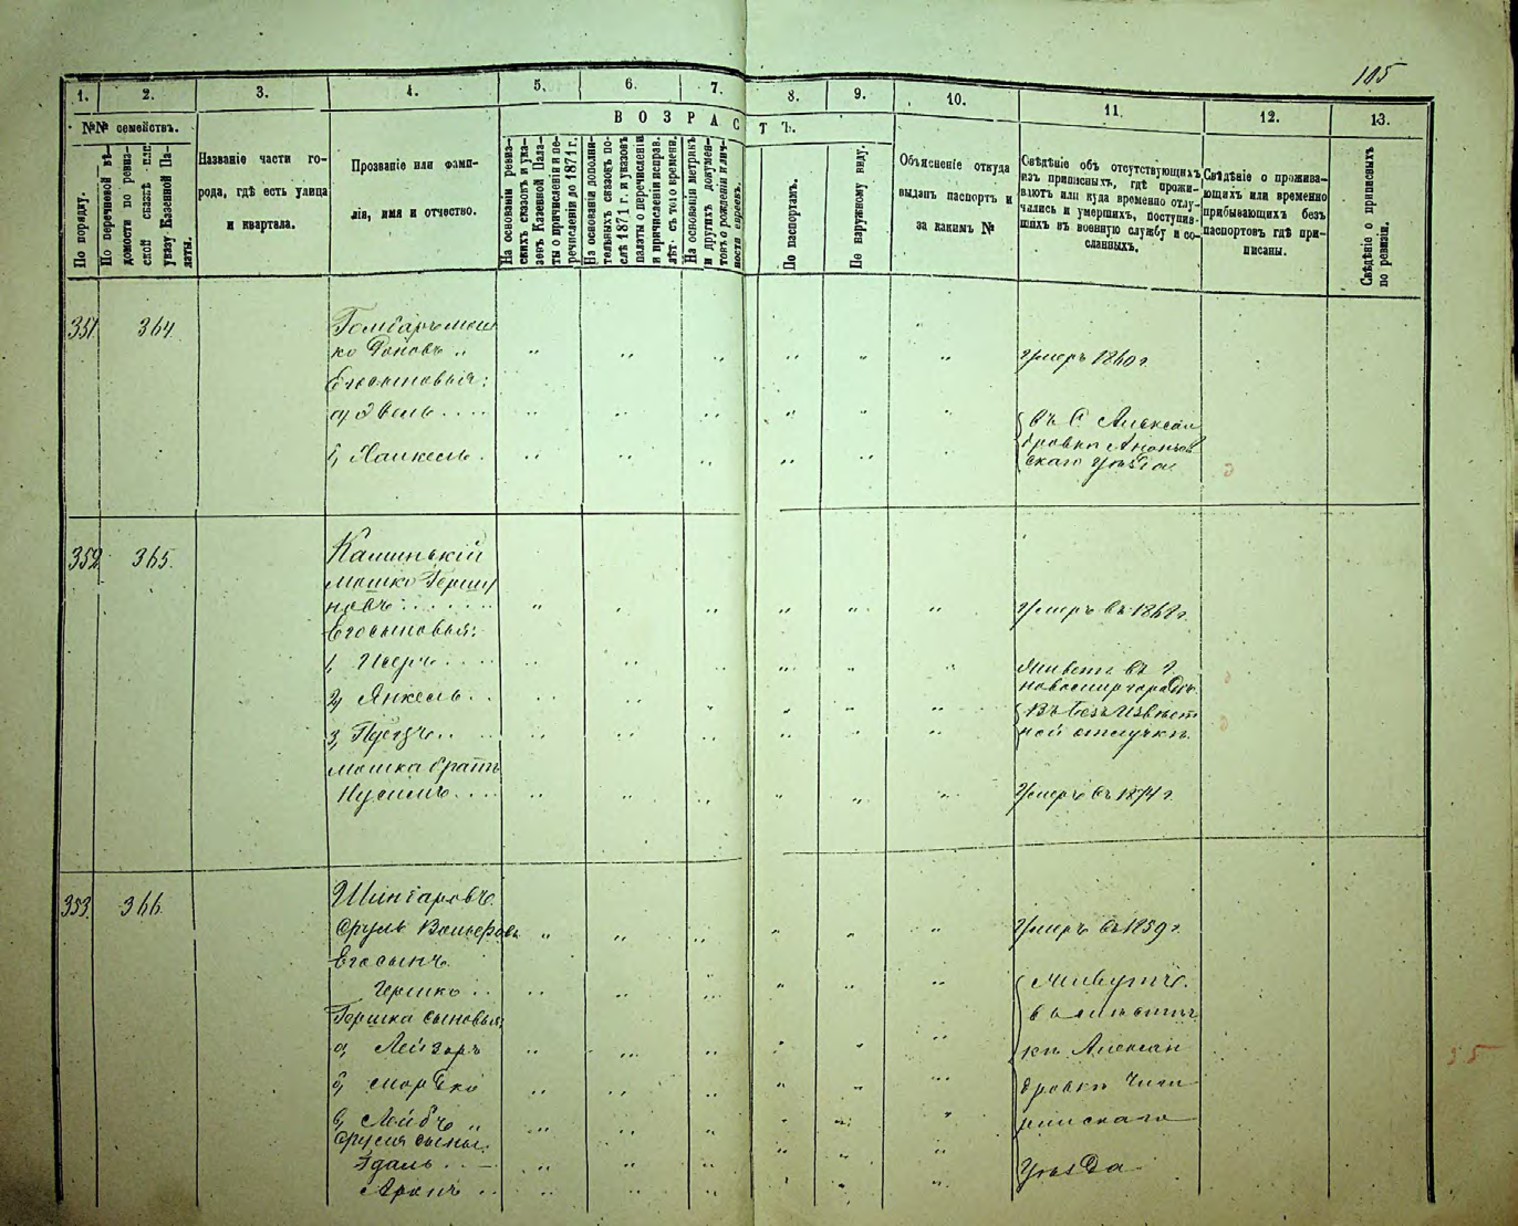 105
1. 2. 3. 4. 5. 6. 7. 8. 9. 10. 11. 12. 13.
№№ семействъ.
ВОЗРАСТЪ.
По порядку.
По перечневой вѣ-
домости по ревиз-
ской сказкѣ или
указу Казенной Па-
латы.
Названіе части го-
рода, гдѣ есть улица
и квартала.
Прозваніе или фами-
лія, имя и отчество.
На основаніи ревиз-
скихъ сказокъ и ука-
зовъ Казенной Пала-
ты о причисленіи и пе-
речисленіи до 1871 г.
На основаніи дополни-
тельныхъ сказокъ по-
слѣ 1871 г. и указовъ
палаты о перечисленіи
и причисленіи исправ.
лѣт. съ того времени.
На основаніи метрикъ
и другихъ докумен-
товъ о рожденіи и лич-
ности евреевъ.
По паспортамъ.
По наружному виду.
Объясненіе откуда
выданъ паспортъ и
за какимъ №
Свѣдѣніе объ отсутствующихъ
изъ приписныхъ, гдѣ прожи-
ваютъ или куда временно отлу-
чались и умершихъ, поступив-
шихъ въ военную службу и со-
сланныхъ.
Свѣдѣніе о прожива-
ющихъ или временно
прибывающихъ безъ
паспортовъ гдѣ при-
писаны.
Свѣдѣніе о приписныхъ
по ревизіи.
351 364
умеръ 1860 г.
Его сыновья:
въ С. Алексан
дровки Ананьев
скаго уѣзда
б, Хаикель
352 365.
Каминькій
Мошко Герш
новъ
умеръ въ 1868 г.
Его сыновья:
1,
Живетъ въ г.
Новомиргородѣ.
2, Янкель
Въ безъизвѣст
ной отлучкѣ.
3,
Мошка братъ
Нусимъ
Умеръ въ 1874 г.
353. 366.
Сруль
Умеръ въ 1859 г.
Его сынъ
Гершко
Живутъ
Гершка сыновья:
а, Лейзеръ
кѣ Алексан
б, Мордко
дровкѣ Чиги
в, Лейбъ
ринскаго
Сруля сыны:
Удаль
Уѣзда
Аронъ